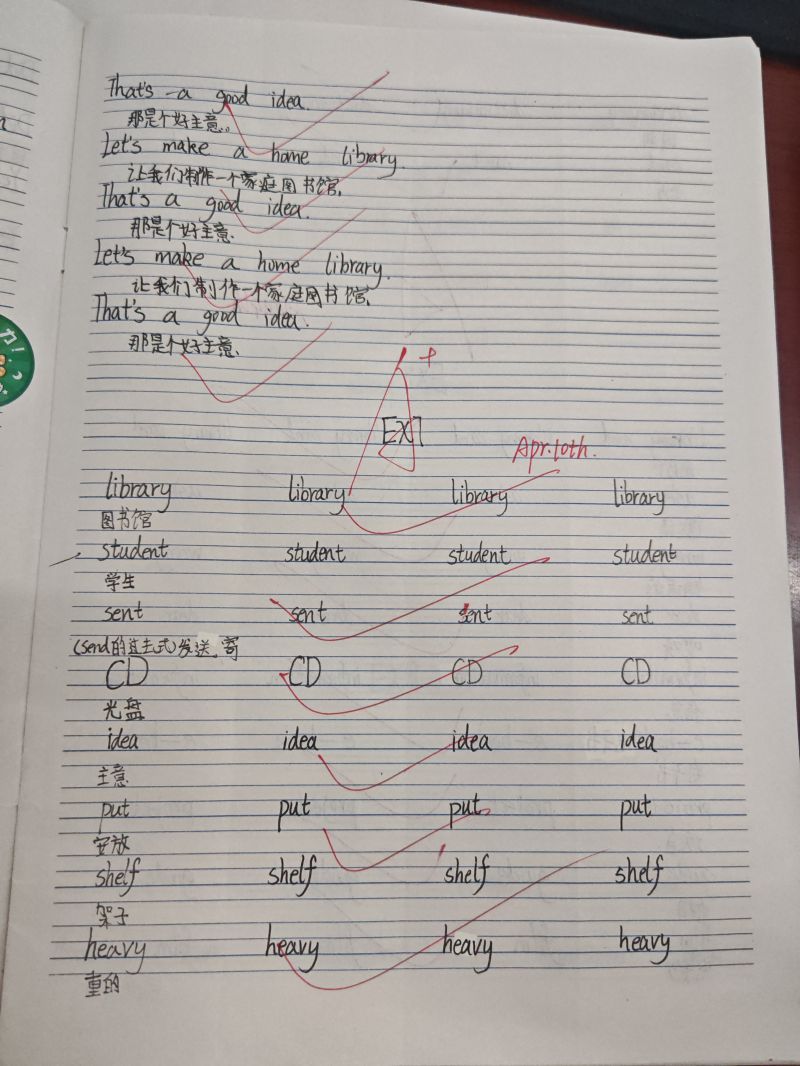 That's a good idea.
那是个好主意。
Let's make a home library
让我们制作一个家庭图书馆.
That's a good idea.
那是个好主意.
Let's make a home library.
让我们制作一个家庭图书馆.
That's a good idea.
那是个好主意.
A+
EX7
Apr.10th.
library library library library
图书馆
student student student student
学生
sent sent sent sent
(send的过去式)发送,寄
CD CD CD CD
光盘
idea idea idea idea
主意
put put put put
安放
shelf shelf shelf shelf
架子
heavy heavy heavy heavy
重的
力!